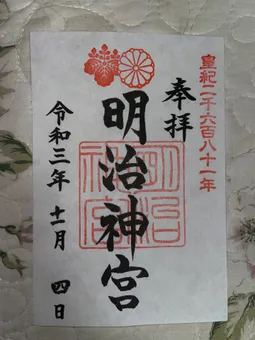 皇紀二千六百八十一年
奉拝
明治神宮
令和三年十一月四日
明治神宮